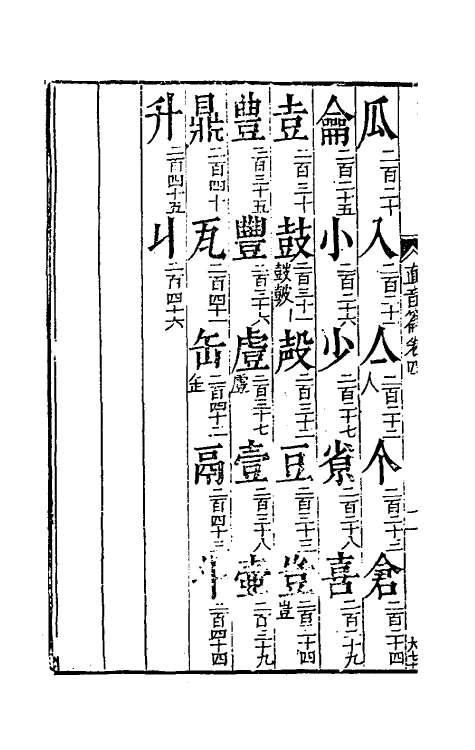 直音篇卷四
瓜 二百二十 入 二百二十一 亼 二百二十二 人 个 二百二十三 倉 二百二十四
龠 二百二十五 小 二百二十六 少 二百二十七 尞 二百二十八 喜 二百二十九
壴 二百三十 鼓 二百三十一 殸 二百三十二 豆 二百三十三 豈 二百三十四
豊 二百三十五 豐 二百三十六 二百三十七 壹 二百三十八 壺 二百三十九
鼎 二百四十 瓦 二百四十一 缶 二百四十二 鬲 二百四十三 斗 二百四十四
升 二百四十五 丩 二百四十六